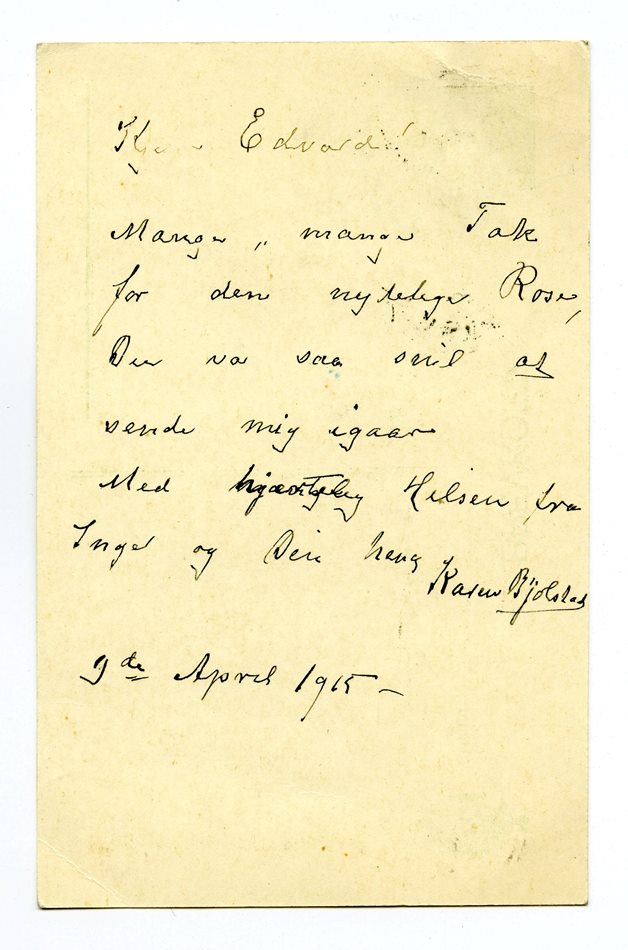 Kjære Edvard!
Mange „ mange Tak
for den nydelige Rose,
Du va saa snil at
sende mig igaar
Med hjærtelig Hilsen fra
Inger og Din heng
Karen Bjölstad
9de April 1915 –